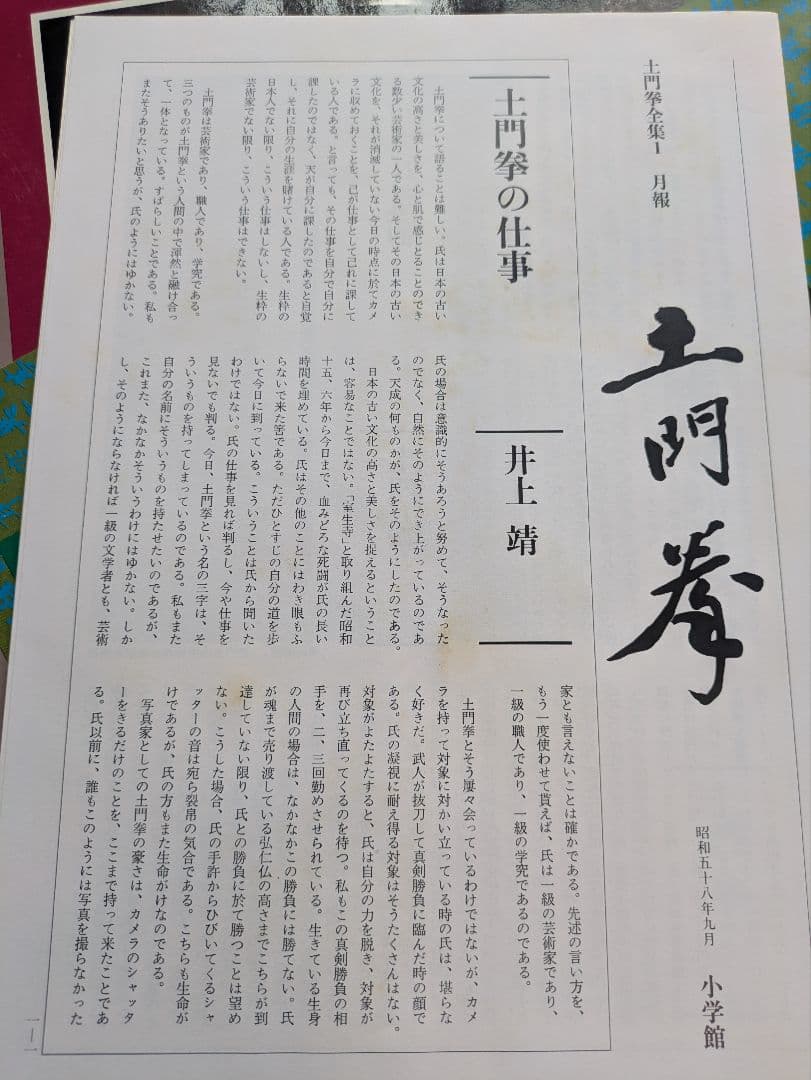 土門拳全集1　月報
土門拳
昭和五十八年九月　小学館
土門拳の仕事
井上　靖
土門拳について語ることは難しい。氏は日本の古い
文化の高さと美しさを、心と肌で感じとることのでき
る数少い芸術家の一人である。そしてその日本の古い
文化を、それが消滅していない今日の時点に於てカメ
ラに収めておくことを、己が仕事として己れに課して
いる人である。と言っても、その仕事を自分で自分に
課したのではなく、天が自分に課したのであると自覚
し、それに自分の生涯を賭けている人である。生粋の
日本人でない限り、こういう仕事はしないし、生粋の
芸術家でない限り、こういう仕事はできない。
土門拳は芸術家であり、職人であり、学究である。
三つのものが土門拳という人間の中で渾然と融け合っ
て、一体となっている。すばらしいことである。私も
またそうありたいと思うが、氏のようにはゆかない。
氏の場合は意識的にそうあろうと努めて、そうなった
のでなく、自然にそのようにでき上がっているのであ
る。天成の何ものかが、氏をそのようにしたのである。
日本の古い文化の高さと美しさを捉えるということ
は、容易なことではない。「室生寺」と取り組んだ昭和
十五、六年から今日まで、血みどろな死闘が氏の長い
時間を埋めている。氏はその他のことにはわき眼もふ
らないで来た筈である。ただひとすじの自分の道を歩
いて今日に到っている。こういうことは氏から聞いた
わけではない。氏の仕事を見れば判るし、今や仕事を
見ないでも判る。今日、土門拳という名の三字は、そ
ういうものを持ってしまっているのである。私もまた
自分の名前にそういうものを持たせたいのであるが、
これまた、なかなかそういうわけにはゆかない。しか
し、そのようにならなければ一級の文学者とも、芸術
家とも言えないことは確かである。先述の言い方を、
もう一度使わせて貰えば、氏は一級の芸術家であり、
一級の職人であり、一級の学究であるのである。
土門拳とそう屡々会っているわけではないが、カメ
ラを持って対象に対かい立っている時の氏は、堪らな
く好きだ。武人が抜刀して真剣勝負に臨んだ時の顔で
ある。氏の凝視に耐え得る対象はそうたくさんはない。
対象がよたよたすると、氏は自分の力を脱き、対象が
再び立ち直ってくるのを待つ。私もこの真剣勝負の相
手を、二、三回勤めさせられている。生きている生身
の人間の場合は、なかなかこの勝負には勝てない。氏
が魂まで売り渡している弘仁仏の高さまでこちらが到
達していない限り、氏との勝負に於て勝つことは望め
ない。こうした場合、氏の手許からひびいてくるシャ
ッターの音は宛ら裂帛の気合である。こちらも生命が
けであるが、氏の方もまた生命がけなのである。
写真家としての土門拳の豪さは、カメラのシャッタ
ーをきるだけのことを、ここまで持って来たことであ
る。氏以前に、誰もこのようには写真を撮らなかった
—1—